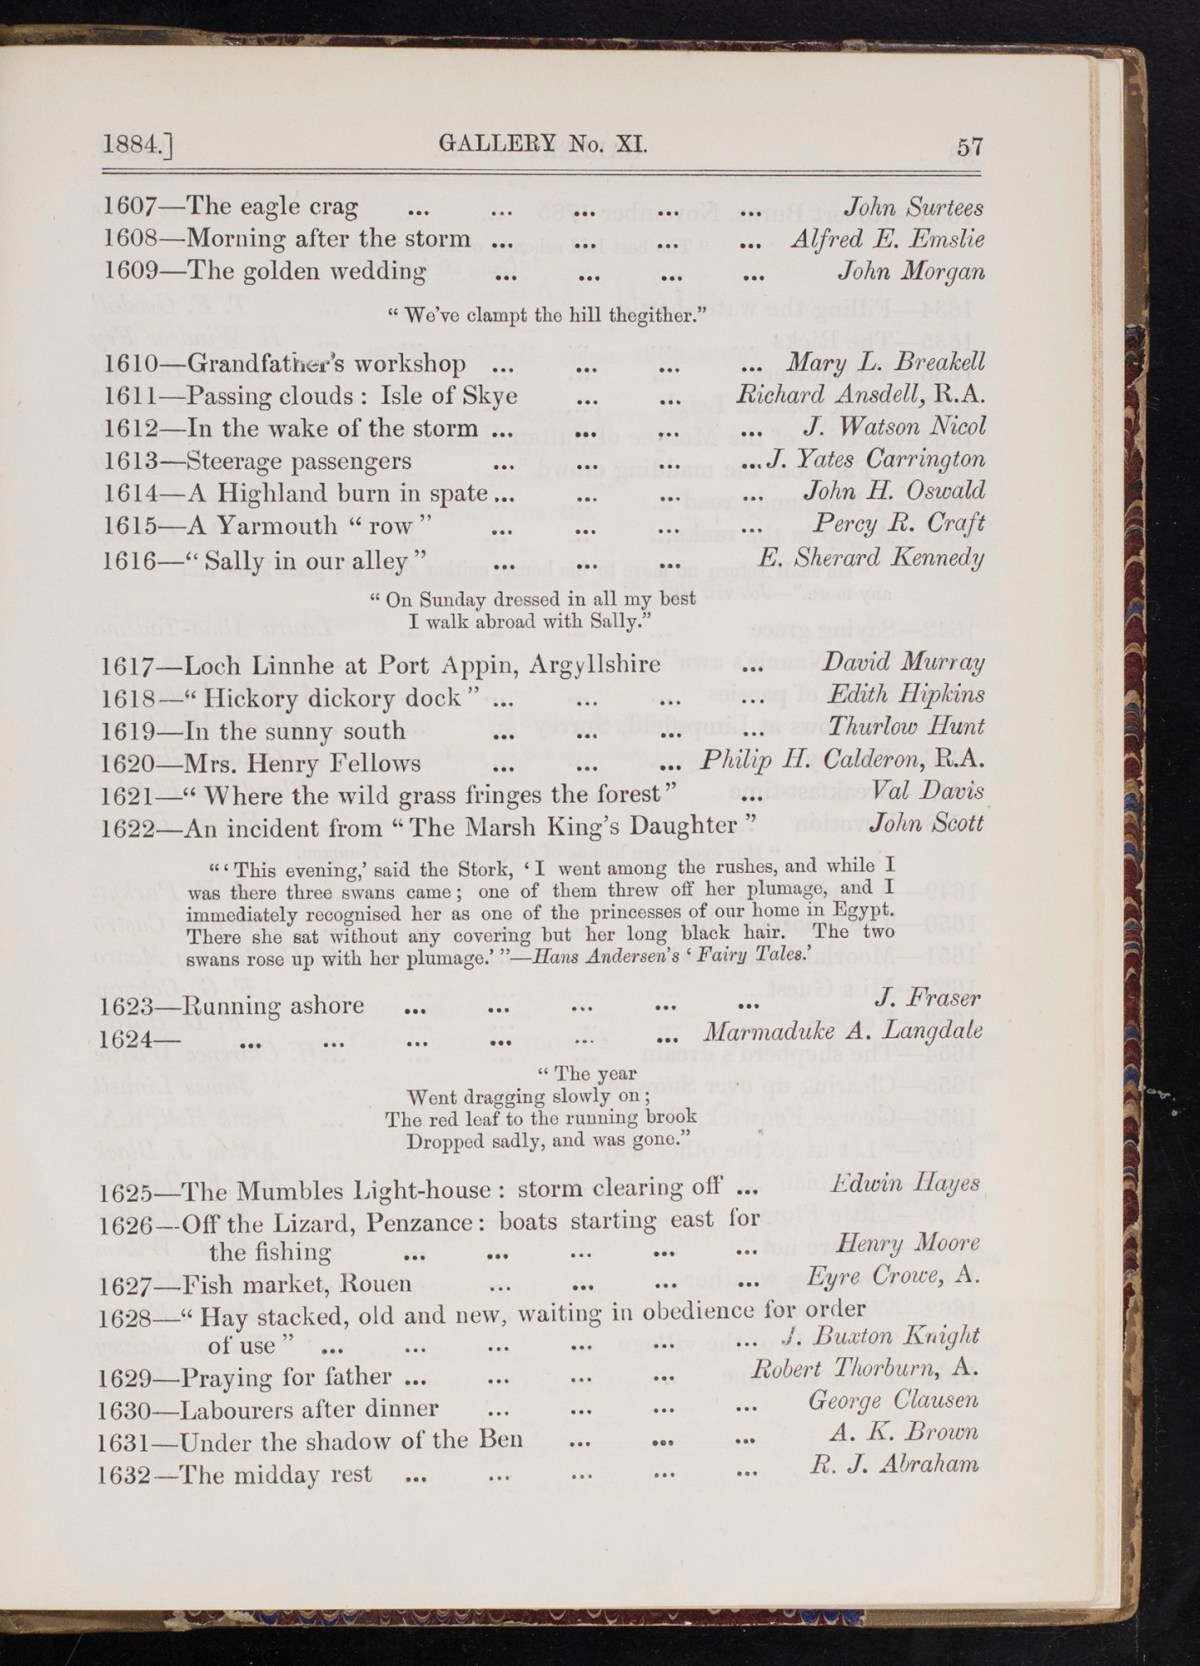 1884.] GALLERY No. XI. 57
1607—The eagle crag ... ... ... ... ... John Surtees
1608—Morning after the storm ... ... ... ... Alfred E. Emslie
1609—The golden wedding ... ... ... ... John Morgan
“ We’ve clampt the hill thegither.”
1610—Grandfather’s workshop ... ... ... ... Mary L. Breakell
1611—Passing clouds : Isle of Skye ... ... Richard Ansdell, R.A.
1612—In the wake of the storm ... ... ... ... J. Watson Nicol
1613—Steerage passengers ... ... ... ... J. Yates Carrington
1614—A Highland burn in spate ... ... ... ... John H. Oswald
1615—A Yarmouth “ row ” ... ... ... ... Percy R. Craft
1616—“ Sally in our alley ” ... ... ... E. Sherard Kennedy
“ On Sunday dressed in all my best
I walk abroad with Sally.”
1617—Loch Linnhe at Port Appin, Argyllshire ... David Murray
1618—“ Hickory dickory dock ” ... ... ... ... Edith Hipkins
1619—In the sunny south ... ... ... ... Thurlow Hunt
1620—Mrs. Henry Fellows ... ... ... Philip H. Calderon, R.A.
1621—“ Where the wild grass fringes the forest ” ... Val Davis
1622—An incident from “ The Marsh King’s Daughter ” John Scott
“ ‘ This evening,’ said the Stork, ‘ I went among the rushes, and while I
was there three swans came ; one of them threw off her plumage, and I
immediately recognised her as one of the princesses of our home in Egypt.
There she sat without any covering but her long black hair. The two
swans rose up with her plumage.’ ”—Hans Andersen’s ‘ Fairy Tales.’
1623—Running ashore ... ... ... ... ... J. Fraser
1624— ... ... ... ... ... ... Marmaduke A. Langdale
“ The year
Went dragging slowly on ;
The red leaf to the running brook
Dropped sadly, and was gone.”
1625—The Mumbles Light-house : storm clearing off ... Edwin Hayes
1626—Off the Lizard, Penzance : boats starting east for
the fishing ... ... ... ... ... Henry Moore
1627—Fish market, Rouen ... ... ... ... Eyre Crowe, A.
1628—“ Hay stacked, old and new, waiting in obedience for order
of use ” ... ... ... ... ... ... J. Buxton Knight
1629—Praying for father ... ... ... ... Robert Thorburn, A.
1630—Labourers after dinner ... ... ... ... George Clausen
1631—Under the shadow of the Ben ... ... ... A. K. Brown
1632—The midday rest ... ... ... ... ... R. J. Abraham